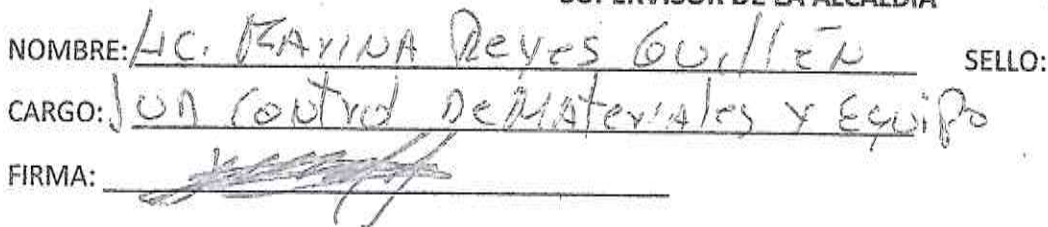 SUPERVISOR DE LA ALCALDIA
NOMBRE: LIC. MARINA Reyes GUillÉN SELLO:
CARGO: JUD Control De MAteriAles Y EqUiPo
FIRMA: